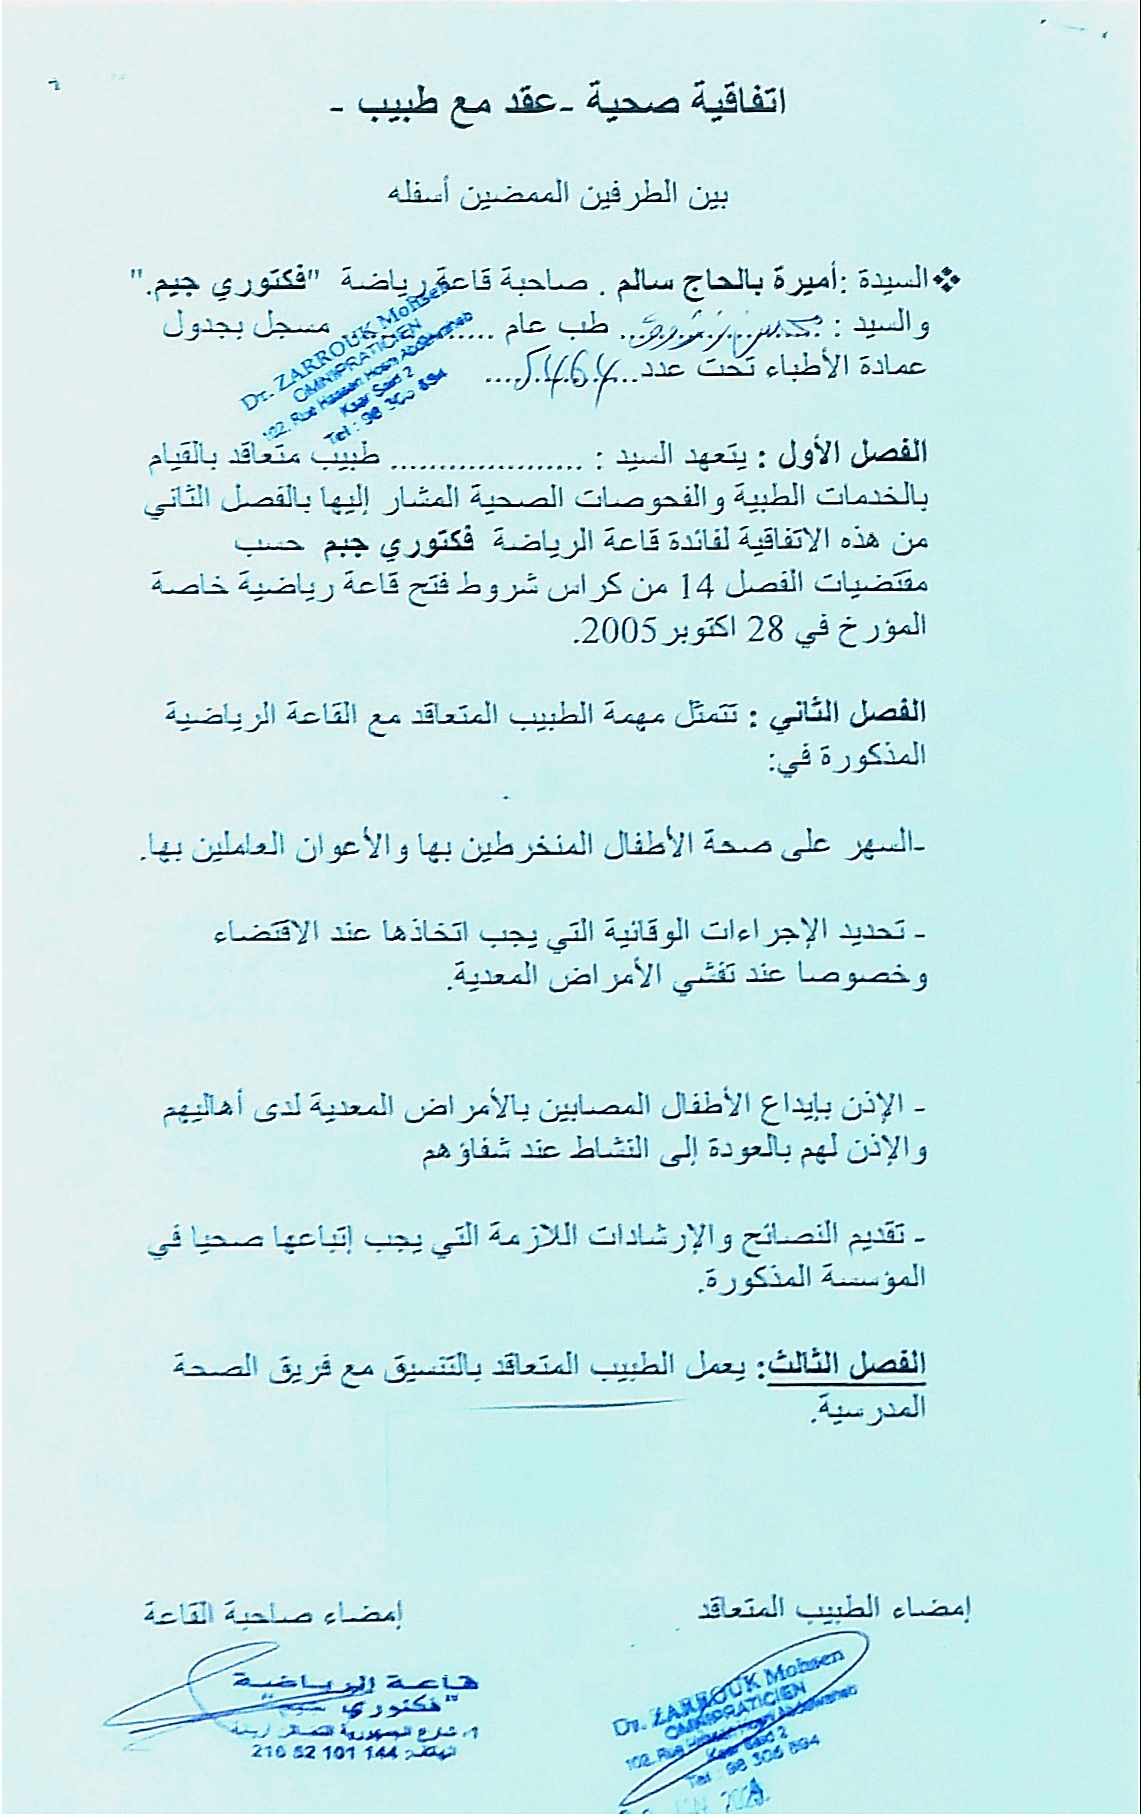 اتفاقية صحية -عقد مع طبيب -
بين الطرفين الممضين أسفله
❖السيدة :أميرة بالحاج سالم . صاحبة قاعة رياضة "فكتوري جيم."
والسيد : محسن زروق... طب عام .............. مسجل بجدول
عمادة الأطباء تحت عدد...
Dr. ZARROUK Mohsen
OMNIPRATICIEN
102, Rue Hassan Hosni Abdelwaheb
Ksar Said 2
Tel : 98 306 894
الفصل الأول : يتعهد السيد : .................... طبيب متعاقد بالقيام
بالخدمات الطبية والفحوصات الصحية المشار إليها بالفصل الثاني
من هذه الاتفاقية لفائدة قاعة الرياضة فكتوري جيم حسب
مقتضيات الفصل 14 من كراس شروط فتح قاعة رياضية خاصة
المؤرخ في 28 اكتوبر 2005.
الفصل الثاني : تتمثل مهمة الطبيب المتعاقد مع القاعة الرياضية
المذكورة في:
-السهر على صحة الأطفال المنخرطين بها والأعوان العاملين بها.
- تحديد الإجراءات الوقائية التي يجب اتخاذها عند الاقتضاء
وخصوصا عند تفشي الأمراض المعدية.
- الإذن بإيداع الأطفال المصابين بالأمراض المعدية لدى أهاليهم
والإذن لهم بالعودة إلى النشاط عند شفاؤهم
- تقديم النصائح والإرشادات اللازمة التي يجب إتباعها صحيا في
المؤسسة المذكورة.
الفصل الثالث: يعمل الطبيب المتعاقد بالتنسيق مع فريق الصحة
المدرسية.
إمضاء الطبيب المتعاقد
إمضاء صاحبة القاعة
Dr. ZARROUK Mohsen
OMNIPRATICIEN
102, Rue Hassan Hosni Abdelwaheb
Ksar Said 2
Tel : 98 306 894
قاعة الرياضية
"فكتوري جيم
1، شارع الجمهورية
الهاتف: 216 52 101 144